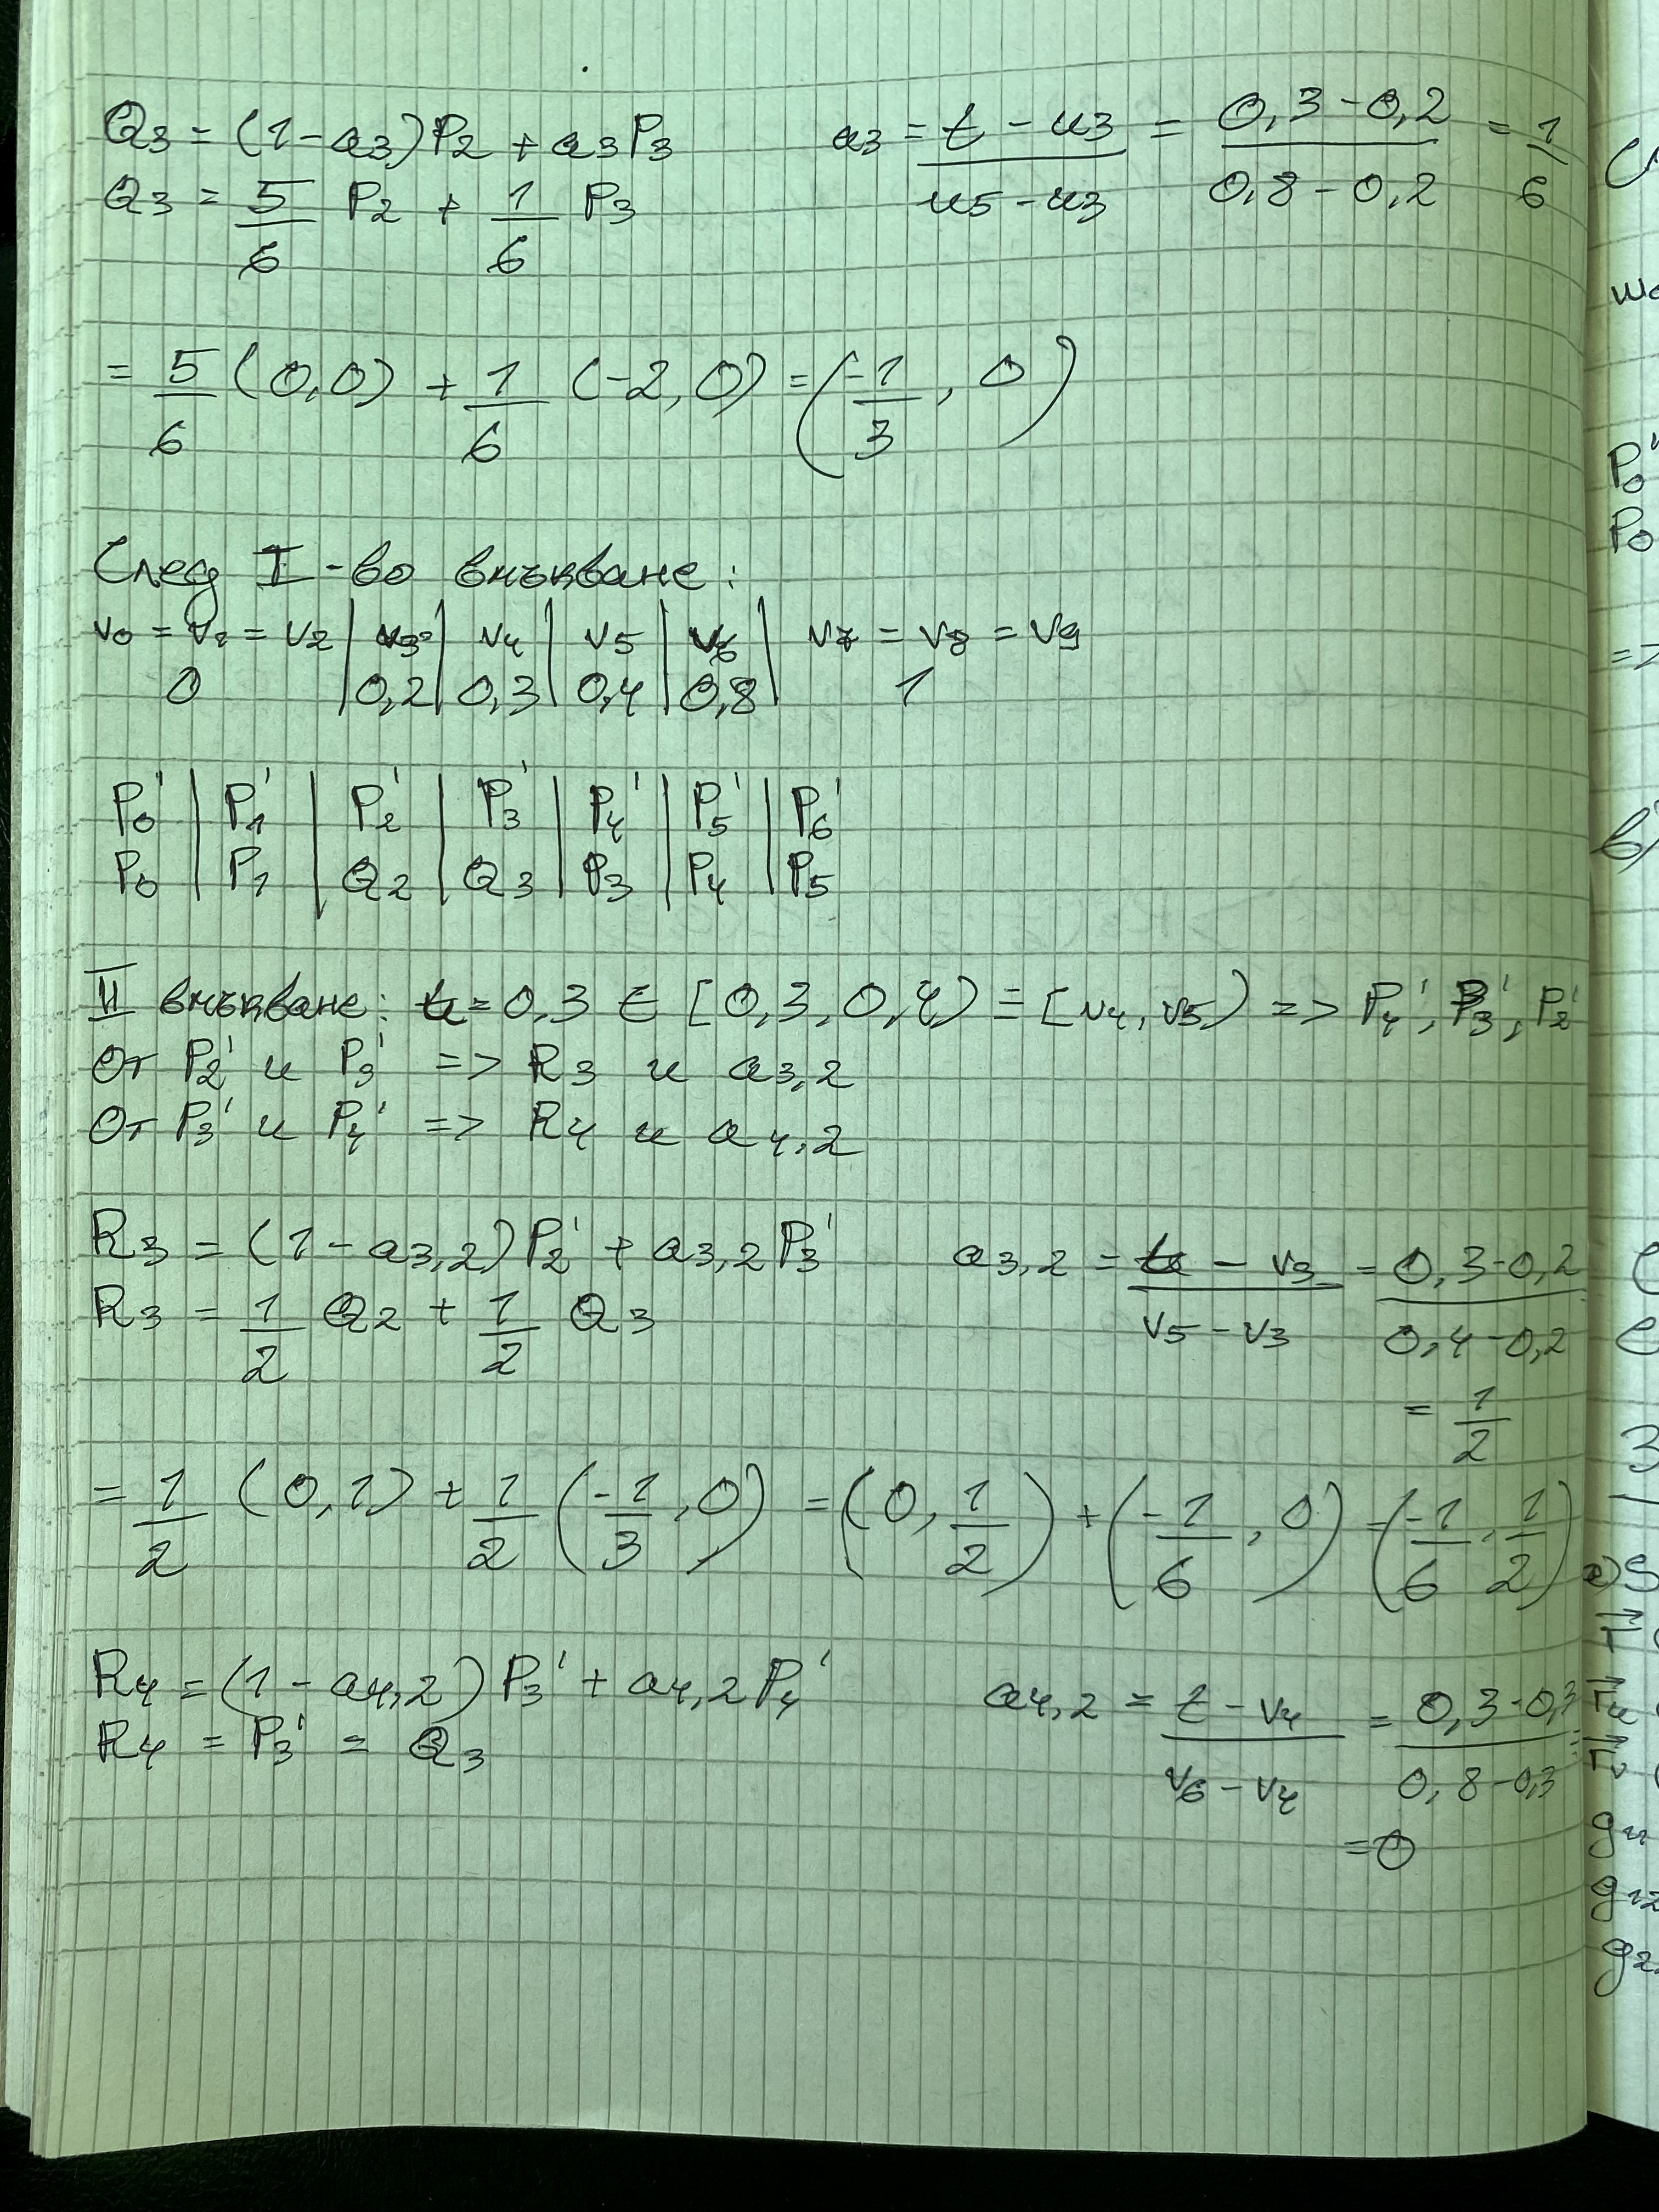 Q3 = (1-a3)P2 + a3P3   a3 = (t - u3)/(u5 - u3) = (0,3-0,2)/(0,8-0,2) = 1/6
Q3 = 5/6 P2 + 1/6 P3
= 5/6 (0,0) + 1/6 (-2,0) = (-1/3, 0)
След I-во вмъкване:
v0 = v1 = v2 | v3 | v4 | v5 | v6 | v7 = v8 = v9
0 | 0,2 | 0,3 | 0,4 | 0,8 | 1
P0' | P1' | P2' | P3' | P4' | P5' | P6'
P0 | P1 | Q2 | Q3 | P3 | P4 | P5
II вмъкване: t = 0,3 ∈ [0,3, 0,4) ≡ [v4, v5) => P4', P3', P2'
От P2' и P3' => R3 и a3,2
От P3' и P4' => R4 и a4,2
R3 = (1-a3,2)P2' + a3,2P3'   a3,2 = (t - v3)/(v5 - v3) = (0,3-0,2)/(0,4-0,2)
R3 = 1/2 Q2 + 1/2 Q3
= 1/2
= 1/2 (0,1) + 1/2 (-1/3, 0) = (0, 1/2) + (-1/6, 0) = (-1/6, 1/2)
R4 = (1-a4,2)P3' + a4,2P4'   a4,2 = (t - v4)/(v6 - v4) = (0,3-0,3)/(0,8-0,3)
R4 = P3' = Q3
= 0